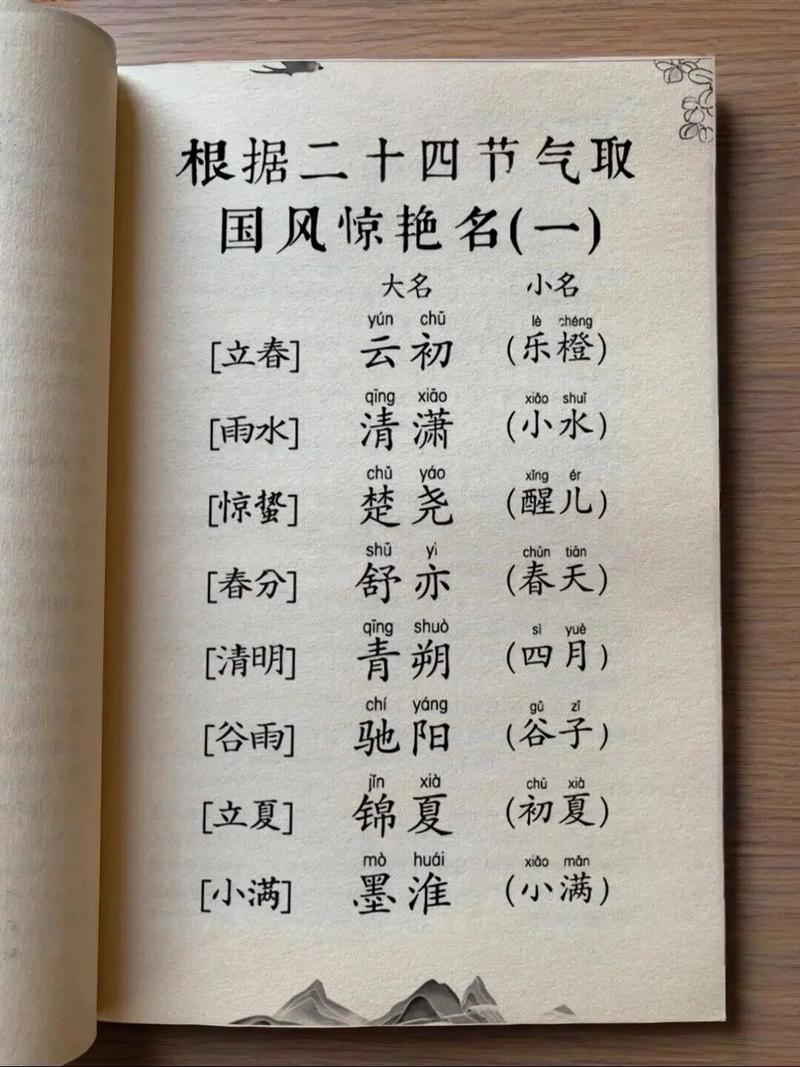 根据二十四节气取
国风惊艳名(一)
大名 小名
yún chū lè chéng
[立春] 云初 (乐橙)
qīng xiāo xiǎo shuǐ
[雨水] 清潇 (小水)
chǔ yáo xǐng ér
[惊蛰] 楚尧 (醒儿)
shū yì chūn tiān
[春分] 舒亦 (春天)
qīng shuò sì yuè
[清明] 青朔 (四月)
chí yáng gǔ zǐ
[谷雨] 驰阳 (谷子)
jǐn xià chū xià
[立夏] 锦夏 (初夏)
mò huái xiǎo mǎn
[小满] 墨淮 (小满)